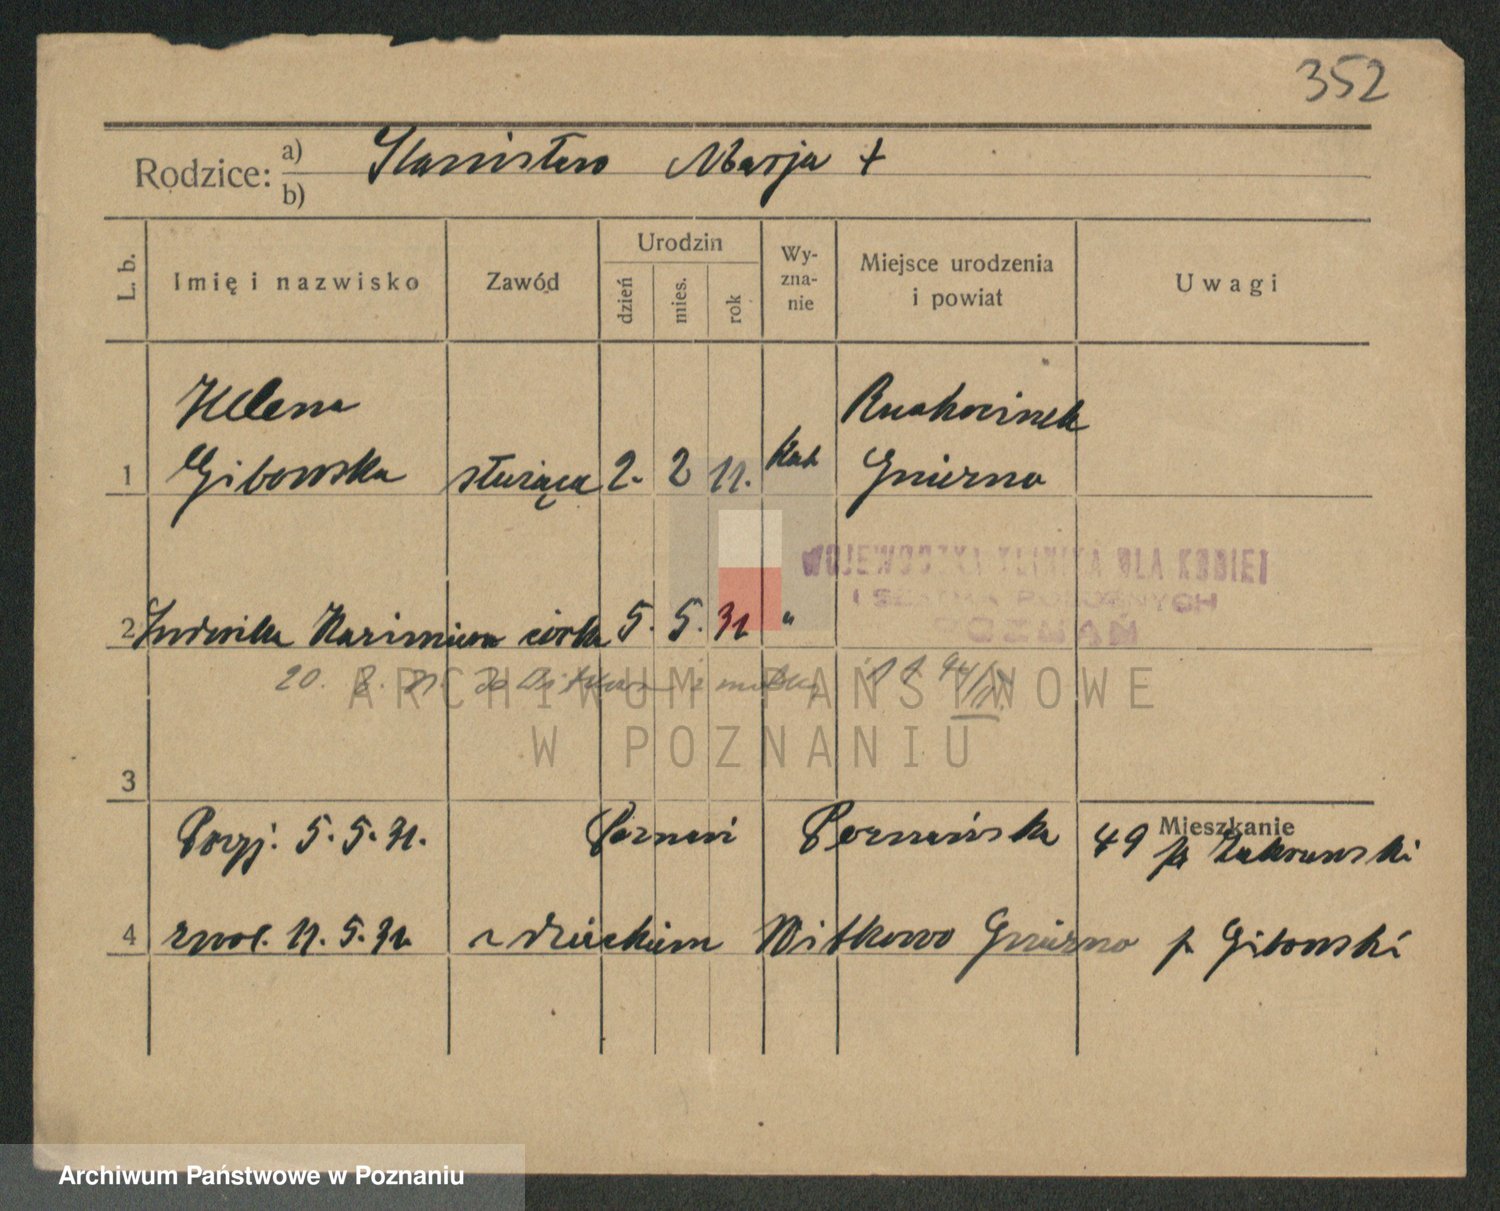 352
Rodzice: a) Stanisław Marja +
b)
L. b. Imię i nazwisko Zawód Urodzin dzień mies. rok Wy-zna-nie Miejsce urodzenia i powiat Uwagi
Helena Ruchocinek
1 Gibowska służąca 2. 2 11. kat Gniezno
WOJEWÓDZKA KLINIKA DLA KOBIET
I SZKOŁA POŁOŻNYCH
POZNAŃ
2 Ludwika Kazimiera córka 5. 5. 31 "
20. 8. 31. do Witkowa z matką
ARCHIWUM PAŃSTWOWE
W POZNANIU
3
Mieszkanie
Przyj. 5. 5. 31. Poznań Poznańska 49 Zakrzewski
4 zwol. 11. 5. 31. z dzieckiem Witkowo Gniezno p Gibowski
Archiwum Państwowe w Poznaniu